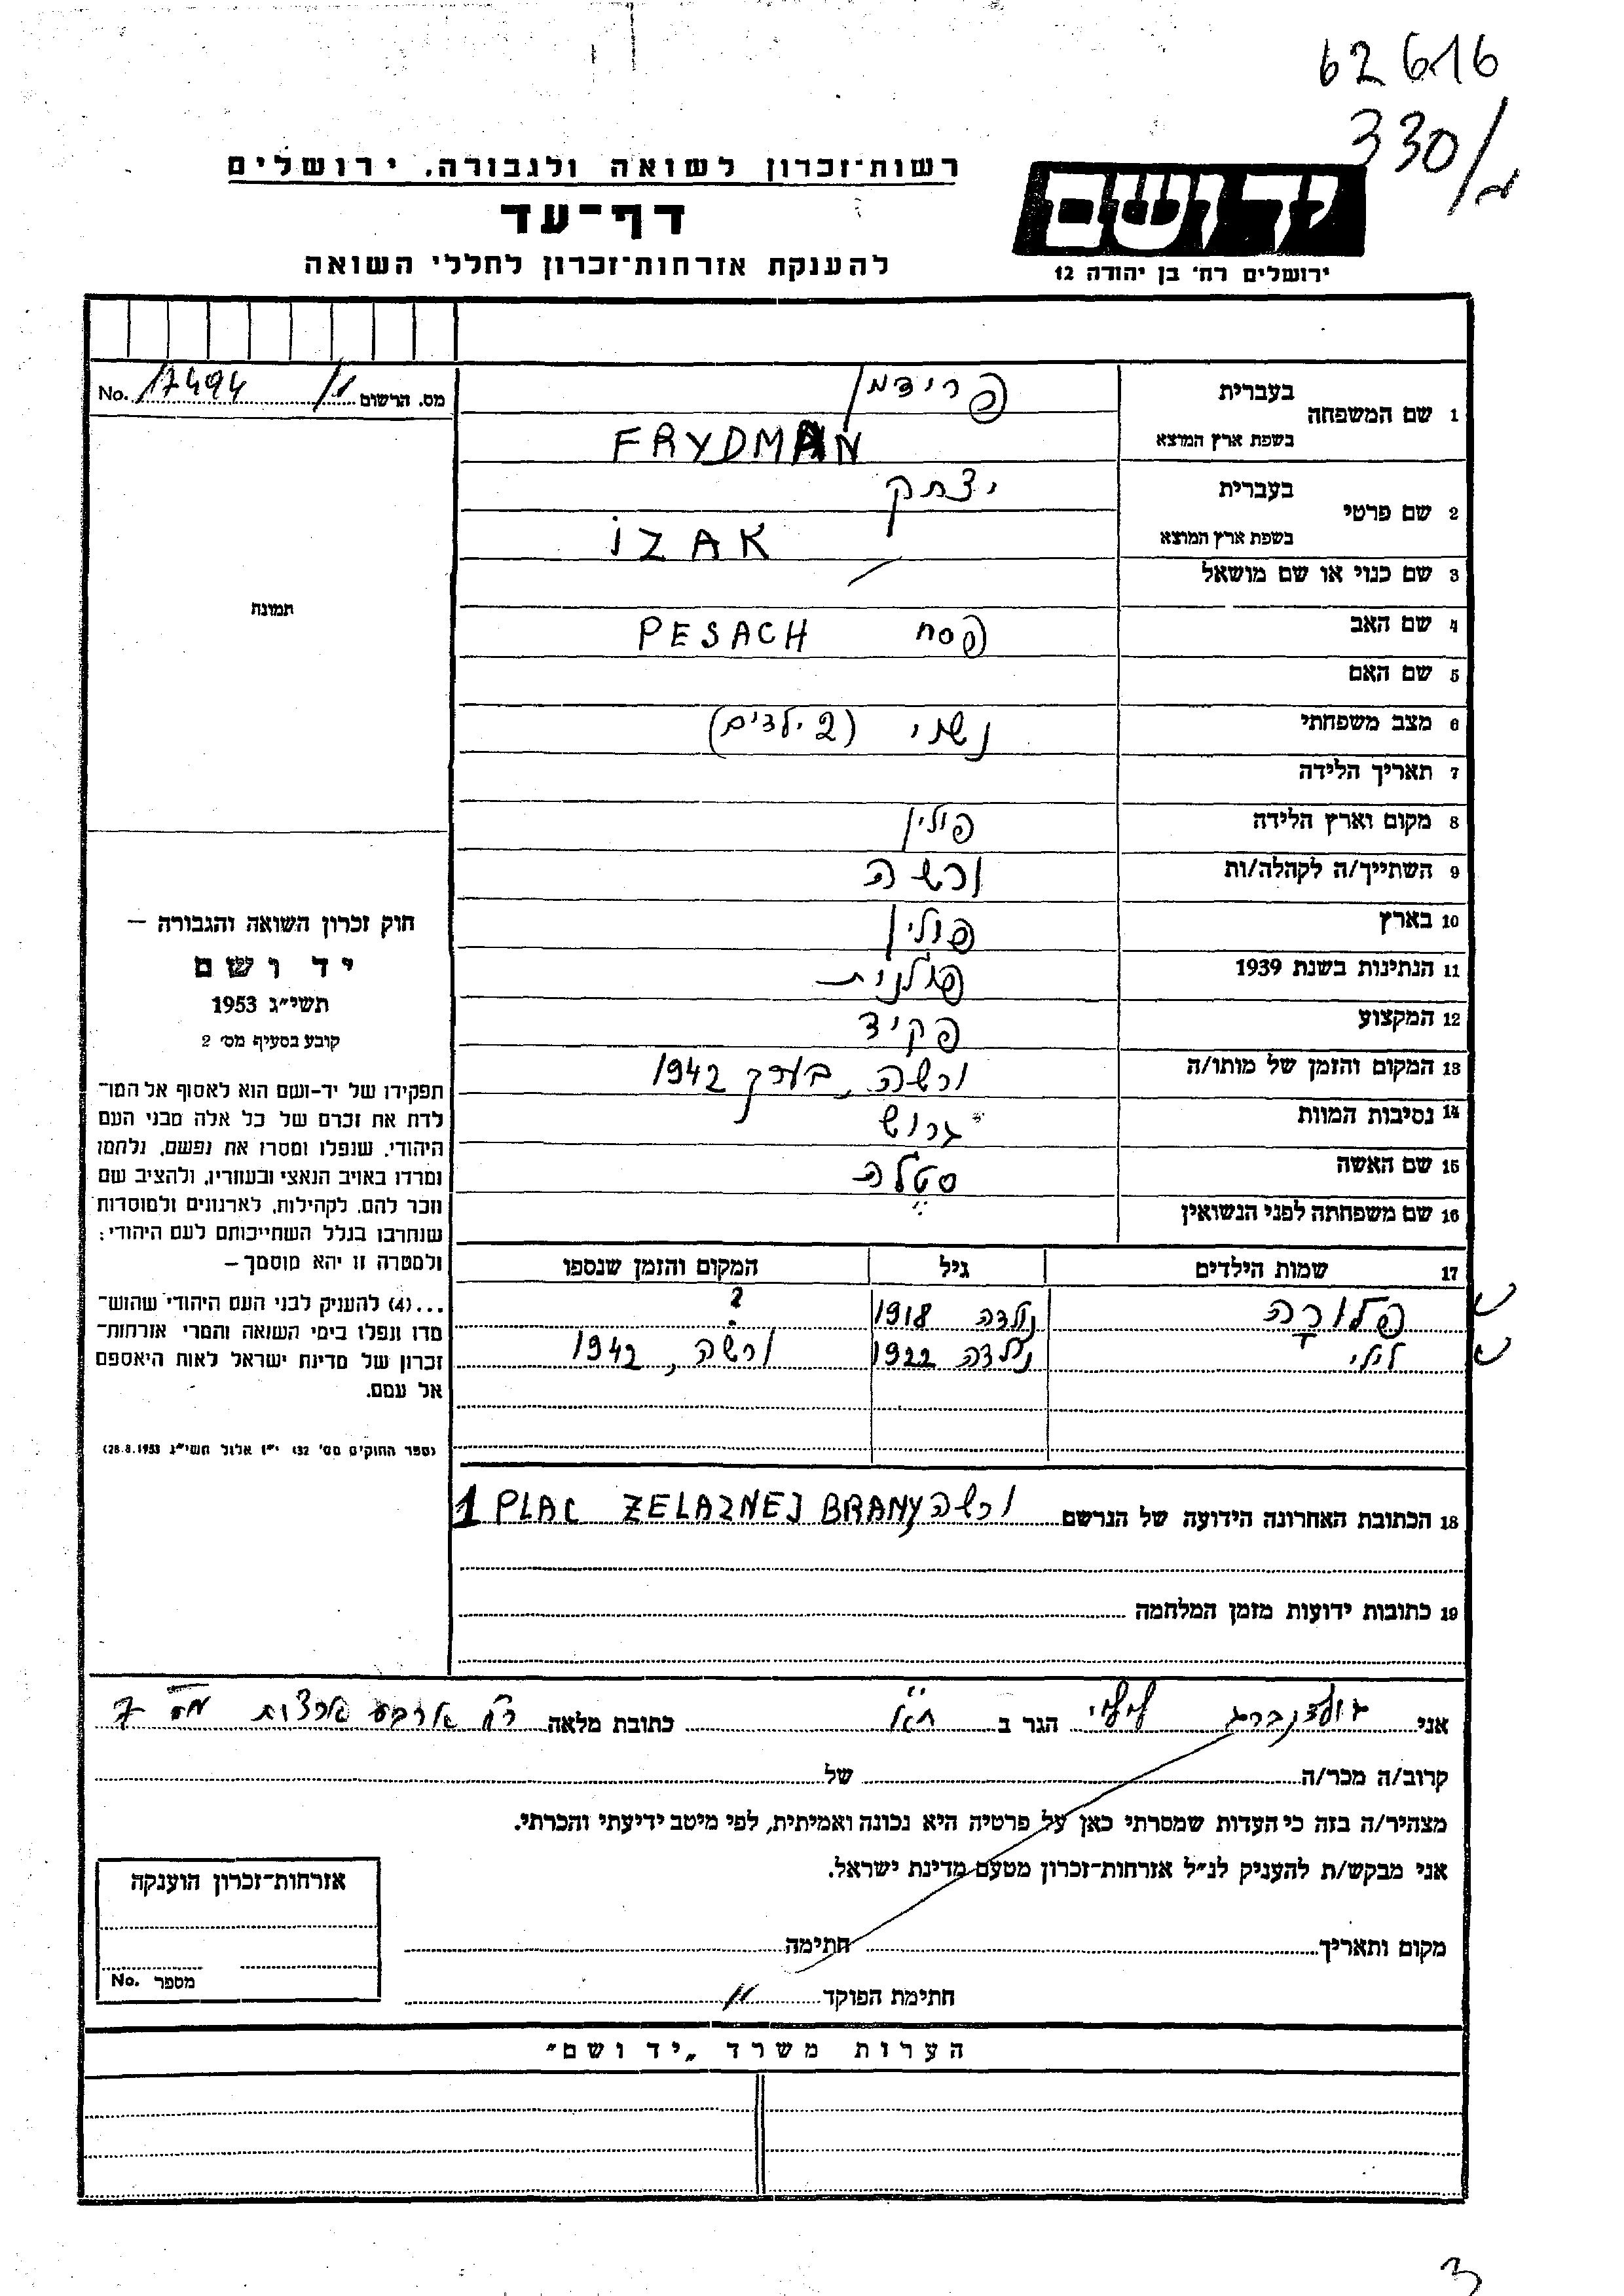 62616
330/
רשות־זכרון לשואה ולגבורה, ירושלים
דף־עד
להענקת אזרחות־זכרון לחללי השואה
יד ושם
ירושלים רח' בן יהודה 12
No. 17494/1 מס. הרשום
1 שם המשפחה בעברית פרידמן
בשפת ארץ המוצא FRYDMAN
2 שם פרטי בעברית יצחק
בשפת ארץ המוצא IZAK
3 שם כנוי או שם מושאל
4 שם האב פסח PESACH
5 שם האם
6 מצב משפחתי נשוי (2 ילדים)
7 תאריך הלידה
8 מקום וארץ הלידה פולין
9 השתייך/ה לקהלה/ות ורשה
10 בארץ פולין
11 הנתינות בשנת 1939 פולנית
12 המקצוע פקיד
13 המקום והזמן של מותו/ה ורשה, בערך 1942
14 נסיבות המוות גרוש
15 שם האשה סטלה
16 שם משפחתה לפני הנשואין
17 שמות הילדים גיל המקום והזמן שנספו
פלורה נולדה 1918 ?
לילי נולדה 1922 ורשה, 1942
18 הכתובת האחרונה הידועה של הנרשם ורשה 1 PLAC ZELAZNEJ BRAMY
19 כתובות ידועות מזמן המלחמה
תמונה
חוק זכרון השואה והגבורה –
יד ושם
תשי״ג 1953
קובע בסעיף מס׳ 2
תפקידו של יד-ושם הוא לאסוף אל המו־
לדת את זכרם של כל אלה מבני העם
היהודי, שנפלו ומסרו את נפשם, נלחמו
ומרדו באויב הנאצי ובעוזריו, ולהציב שם
וזכר להם, לקהילות, לארגונים ולמוסדות
שנחרבו בגלל השתייכותם לעם היהודי;
ולמטרה זו יהא מוסמך –
...(4) להעניק לבני העם היהודי שהוש־
מדו ונפלו בימי השואה והמרי אזרחות־
זכרון של מדינת ישראל לאות היאספם
אל עמם.
(ספר החוקים מס׳ 132 י״ז אלול תשי״ג 28.8.1953)
אני גולדנברג לילי הגר ב ת״א כתובת מלאה רח׳ ארבע ארצות מס׳ 7
קרוב/ה מכר/ה של
מצהיר/ה בזה כי העדות שמסרתי כאן על פרטיה היא נכונה ואמיתית, לפי מיטב ידיעתי והכרתי.
אני מבקש/ת להעניק לנ״ל אזרחות־זכרון מטעם מדינת ישראל.
מקום ותאריך חתימה
חתימת הפוקד
אזרחות־זכרון הוענקה
מספר No.
הערות משרד „יד ושם״